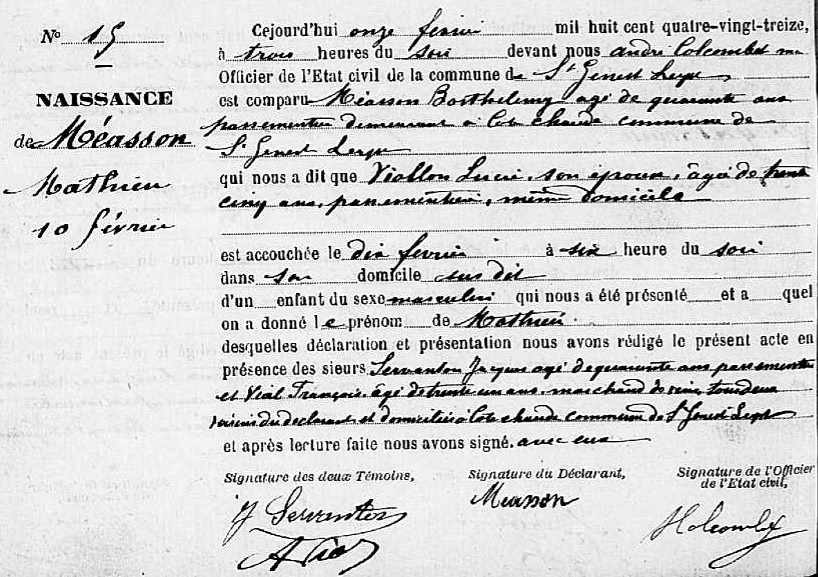 N° 15
NAISSANCE
de Méasson
Mathieu
10 février
Cejourd'hui onze fevrier mil huit cent quatre-vingt-treize,
à trois heures du soir devant nous andré Colcombet
Officier de l'Etat civil de la commune de St Genest Lerpt
est comparu Méasson Barthelemy agé de quarante ans
passementier demeurant à Cote chaude commune de
St Genest Lerpt
qui nous a dit que Viallon Lucie, son épouse, âgée de trente
cinq ans, passementière, même domicile
est accouchée le dix fevrier à six heure du soir
dans son domicile sus dit
d'un enfant du sexe masculin qui nous a été présenté et a quel
on a donné le prénom de Mathieu.
desquelles déclaration et présentation nous avons rédigé le présent acte en
présence des sieurs Servanton Jacques agé de quarante ans passementier
et Vial Français, âgé de trente un ans, marchand de vin, tous deux
voisins du declarant et domiciliés à Cote chaude commune de St Genest Lerpt
et après lecture faite nous avons signé. avec eux
Signature des deux Témoins,
Signature du Déclarant,
Signature de l'Officier
de l'Etat civil,
J Serventon
Measson
A Vial